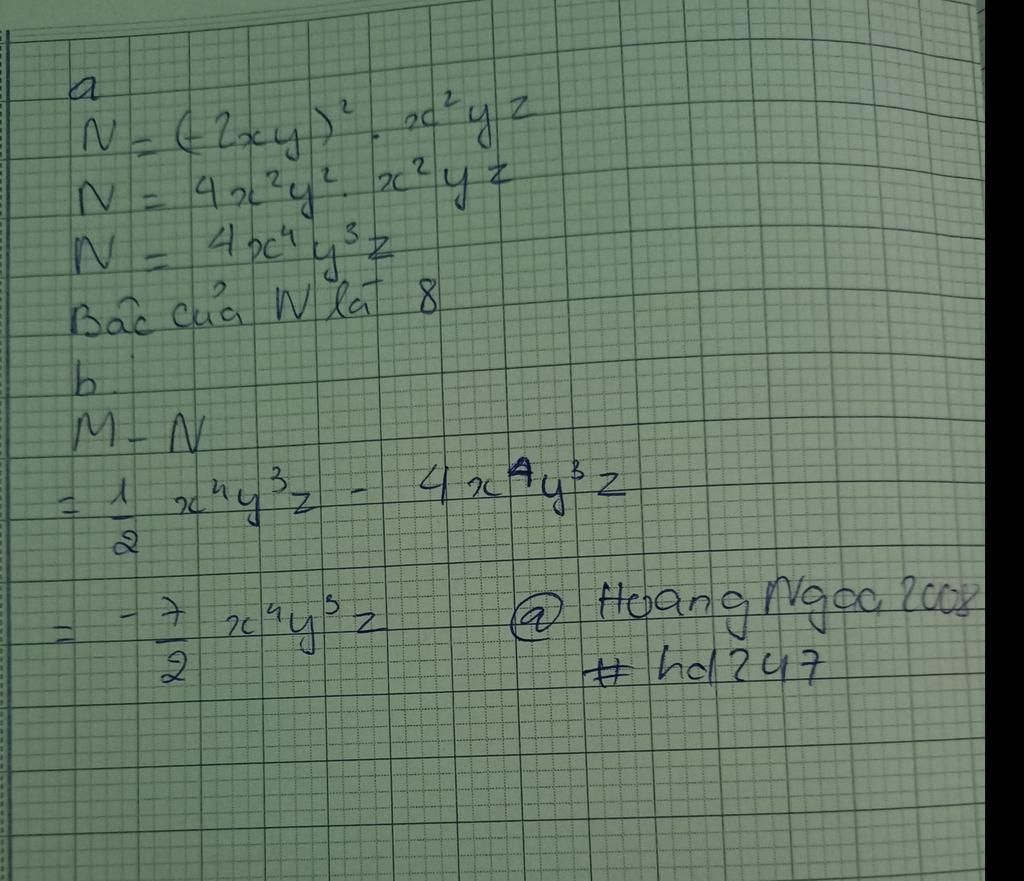 a
N = (-2xy)² . x²yz
N = 4x²y² . x²yz
N = 4x⁴y³z
Bâc của N là 8
b.
M - N
= 1/2 x⁴y³z - 4x⁴y³z
= -7/2 x⁴y³z @ HoangNgoc2008
# hd247